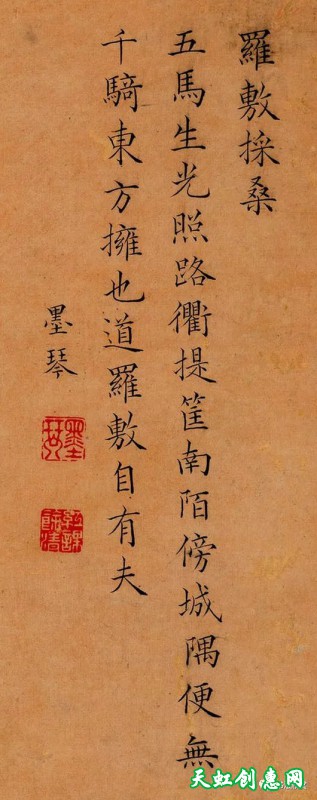 羅敷採桑
五馬生光照路衢提筐南陌傍城隅便無
千騎東方擁也道羅敷自有夫
墨琴
天虹创惠网